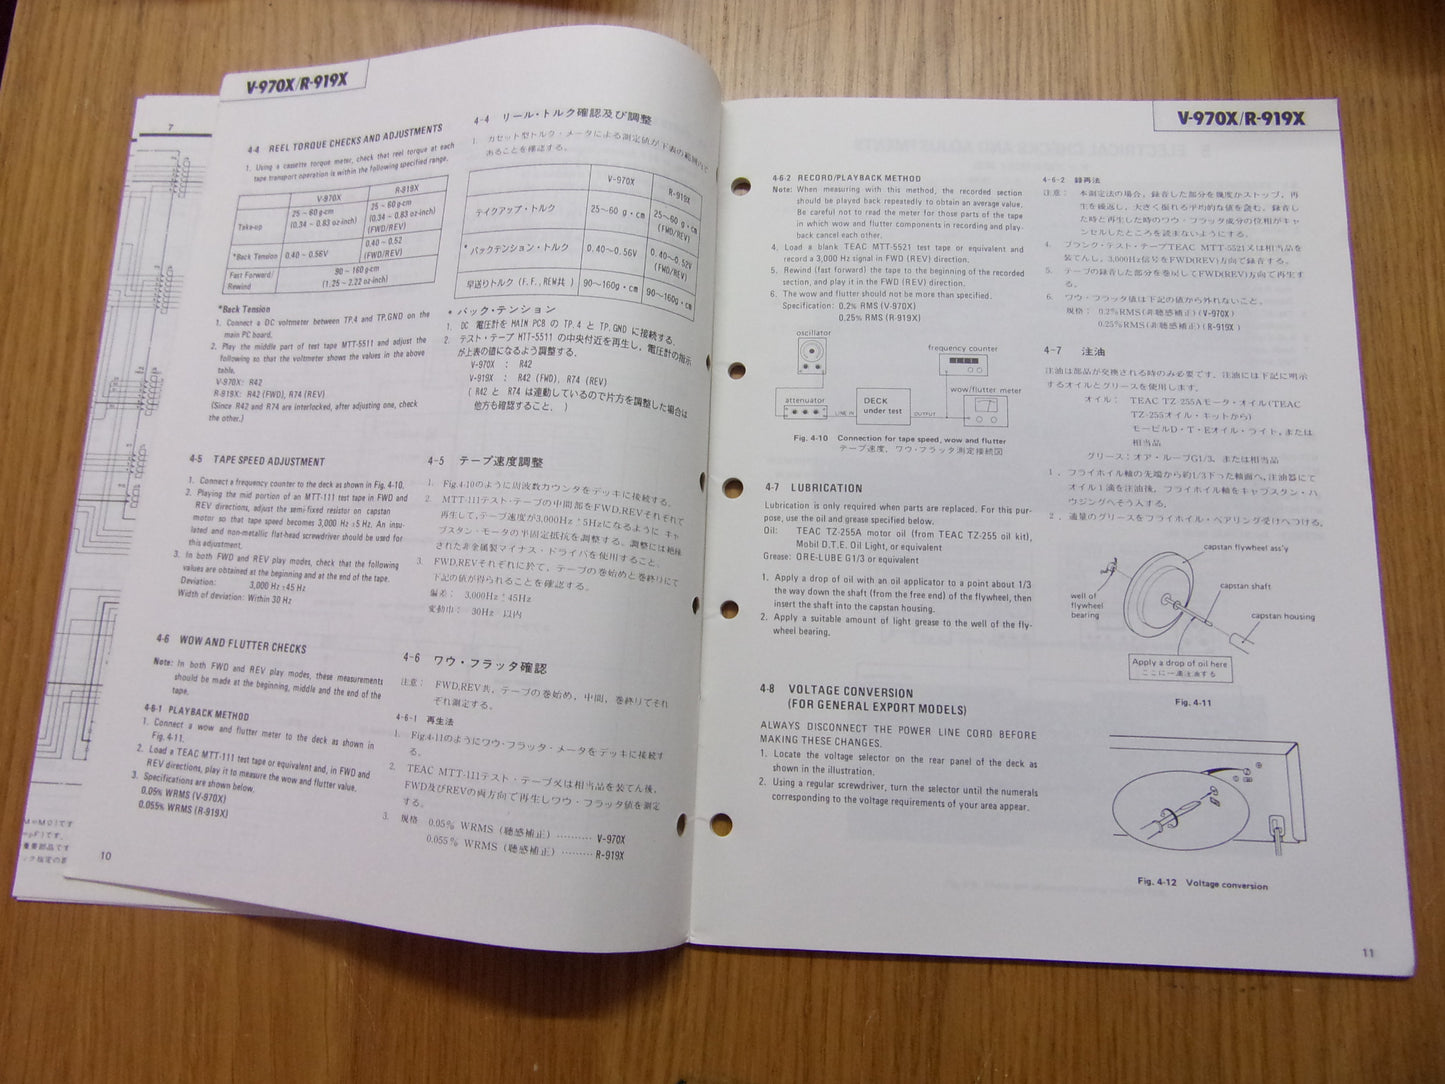 7
V-970X/R-919X
4-4 REEL TORQUE CHECKS AND ADJUSTMENTS
1. Using a cassette torque meter, check that reel torque at each
tape transport operation is within the following specified range.
V-970X R-919X
Take-up 25 ~ 60 g-cm (0.34 ~ 0.83 oz-inch) 25 ~ 60 g-cm (0.34 ~ 0.83 oz-inch) (FWD/REV)
*Back Tension 0.40 ~ 0.56V 0.40 ~ 0.52 (FWD/REV)
Fast Forward/ Rewind 90 ~ 160 g-cm (1.25 ~ 2.22 oz-inch)
*Back Tension
1. Connect a DC voltmeter between TP.4 and TP.GND on the
main PC board.
2. Play the middle part of test tape MTT-5511 and adjust the
following so that the voltmeter shows the values in the above
table.
V-970X: R42
R-919X: R42 (FWD), R74 (REV)
(Since R42 and R74 are interlocked, after adjusting one, check
the other.)
4-5 TAPE SPEED ADJUSTMENT
1. Connect a frequency counter to the deck as shown in Fig. 4-10.
2. Playing the mid portion of an MTT-111 test tape in FWD and
REV directions, adjust the semi-fixed resistor on capstan
motor so that tape speed becomes 3,000 Hz ±5 Hz. An insu-
lated and non-metallic flat-head screwdriver should be used for
this adjustment.
3. In both FWD and REV play modes, check that the following
values are obtained at the beginning and at the end of the tape.
Deviation: 3,000 Hz ±45 Hz
Width of deviation: Within 30 Hz
4-6 WOW AND FLUTTER CHECKS
Note: In both FWD and REV play modes, these measurements
should be made at the beginning, middle and the end of the
tape.
4-6-1 PLAYBACK METHOD
1. Connect a wow and flutter meter to the deck as shown in
Fig. 4-11.
2. Load a TEAC MTT-111 test tape or equivalent and, in FWD and
REV directions, play it to measure the wow and flutter value.
3. Specifications are shown below.
0.05% WRMS (V-970X)
0.055% WRMS (R-919X)
10
4-4 リール・トルク確認及び調整
1. カセット型トルク・メータによる測定値が下表の範囲内で
あることを確認する。
V-970X R-919X
テイクアップ・トルク 25~60 g・cm 25~60 g・cm (FWD/REV)
*バックテンション・トルク 0.40~0.56V 0.40~0.52V (FWD/REV)
早送りトルク (F.F.,REW共) 90~160g・cm 90~160g・cm
* バック・テンション
1. DC 電圧計を MAIN PCB の TP.4 と TP.GND に接続する.
2. テスト・テープ MTT-5511 の中央付近を再生し, 電圧計の指示
が上表の値になるよう調整する.
V-970X : R42
V-919X : R42 (FWD), R74 (REV)
( R42 と R74 は連動しているので片方を調整した場合は
他方も確認すること. )
4-5 テープ速度調整
1. Fig.4-10のように周波数カウンタをデッキに接続する。
2. MTT-111テスト・テープの中間部をFWD,REVそれぞれで
再生して,テープ速度が3,000Hz ±5Hzになるように キャ
プスタン・モータの半固定抵抗を調整する。調整には絶縁
された非金属製マイナス・ドライバを使用すること。
3. FWD,REVそれぞれに於て, テープの巻始めと巻終りにて
下記の値が得られることを確認する。
偏差: 3,000Hz ±45Hz
変動巾: 30Hz 以内
4-6 ワウ・フラッタ確認
注意: FWD,REV共, テープの巻始め, 中間, 巻終りでそれ
ぞれ測定する。
4-6-1 再生法
1. Fig.4-11のようにワウ・フラッタ・メータをデッキに接続す
る。
2. TEAC MTT-111テスト・テープ又は相当品を装てん後,
FWD及びREVの両方向で再生しワウ・フラッタ値を測定
する。
3. 規格 0.05% WRMS (聴感補正) ·········· V-970X
0.055% WRMS (聴感補正) ·········R-919X
V-970X/R-919X
4-6-2 RECORD/PLAYBACK METHOD
Note: When measuring with this method, the recorded section
should be played back repeatedly to obtain an average value.
Be careful not to read the meter for those parts of the tape
in which wow and flutter components in recording and play-
back cancel each other.
4. Load a blank TEAC MTT-5521 test tape or equivalent and
record a 3,000 Hz signal in FWD (REV) direction.
5. Rewind (fast forward) the tape to the beginning of the recorded
section, and play it in the FWD (REV) direction.
6. The wow and flutter should not be more than specified.
Specification: 0.2% RMS (V-970X)
0.25% RMS (R-919X)
oscillator
frequency counter
attenuator
LINE IN
DECK
under test
OUTPUT
wow/flutter meter
Fig. 4-10 Connection for tape speed, wow and flutter
テープ速度, ワウ・フラッタ測定接続図
4-7 LUBRICATION
Lubrication is only required when parts are replaced. For this pur-
pose, use the oil and grease specified below.
Oil: TEAC TZ-255A motor oil (from TEAC TZ-255 oil kit),
Mobil D.T.E. Oil Light, or equivalent
Grease: ORE-LUBE G1/3 or equivalent
1. Apply a drop of oil with an oil applicator to a point about 1/3
the way down the shaft (from the free end) of the flywheel, then
insert the shaft into the capstan housing.
2. Apply a suitable amount of light grease to the well of the fly-
wheel bearing.
4-8 VOLTAGE CONVERSION
(FOR GENERAL EXPORT MODELS)
ALWAYS DISCONNECT THE POWER LINE CORD BEFORE
MAKING THESE CHANGES.
1. Locate the voltage selector on the rear panel of the deck as
shown in the illustration.
2. Using a regular screwdriver, turn the selector until the numerals
corresponding to the voltage requirements of your area appear.
4-6-2 録再法
注意: 本測定法の場合, 録音した部分を幾度かストップ, 再
生を繰返し, 大きく振れる平均的な値を読む。録音し
た時と再生した時のワウ・フラッタ成分の位相がキャ
ンセルしたところを読まないようにする。
4. ブランク・テスト・テープTEAC MTT-5521又は相当品を
装てんし, 3,000Hz信号をFWD(REV)方向で録音する。
5. テープの録音した部分を巻戻してFWD(REV)方向で再生す
る。
6. ワウ・フラッタ値は下記の値から外れないこと。
規格: 0.2%RMS(非聴感補正)(V-970X)
0.25%RMS(非聴感補正)(R-919X)
4-7 注油
注油は部品が交換される時のみ必要です. 注油には下記に明示
するオイルとグリースを使用します.
オイル: TEAC TZ-255Aモータ・オイル(TEAC
TZ-255オイル・キットから)
モービルD・T・Eオイル・ライト, または
相当品
グリース:オア・ルーブG1/3, または相当品
1. フライホイル軸の先端から約1/3下った軸面へ, 注油器にて
オイル1滴を注油後, フライホイル軸をキャプスタン・ハ
ウジングへそう入する.
2. 適量のグリースをフライホイル・ベアリング受けへつける.
capstan flywheel ass'y
well of
flywheel
bearing
capstan shaft
capstan housing
Apply a drop of oil here
ここに一滴注油する
Fig. 4-11
Fig. 4-12 Voltage conversion
11